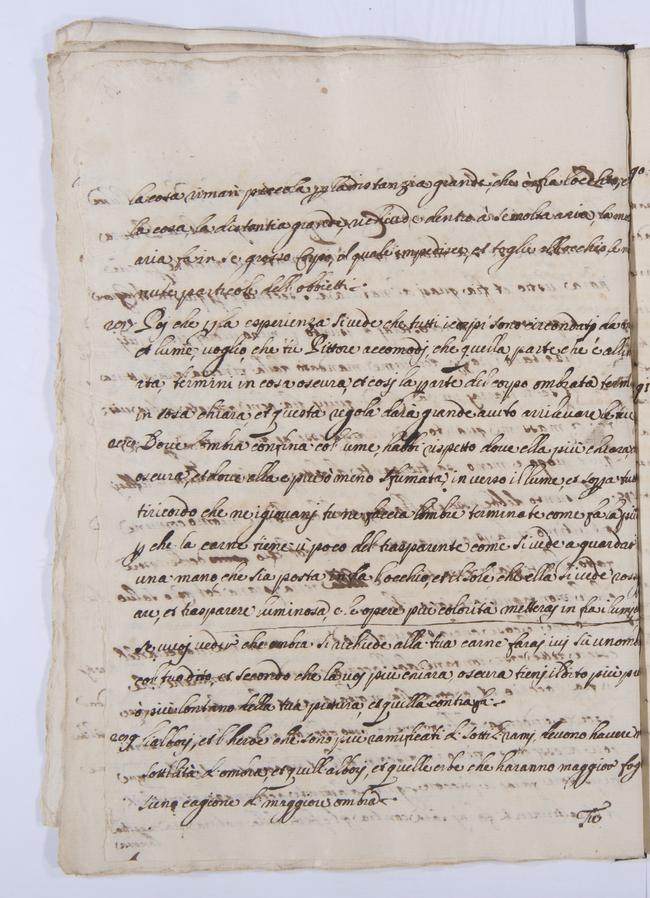 la cosa rimarà piccola p la distanzia grande, che è infra l'occhio, e
la cosa, la distantia grande richiude dentro à se molta aria, la mo
aria fà in se grosso Corpo, il quale impedisce, et toglie all'occhio le mi
nute particole delli obbietti.
Poi che p la esperienza si vede che tutti i corpi sono circondati da
et lume, voglio che tù Pittore accomodi, che quella parte che è allu
rata, termini in cosa oscura, et cosi la parte del corpo ombrata termi
in cosa chiara, et questa regola darà grande aiuto a rilevare le tue
Dove l'ombra confina col lume, habbi rispetto dove ella più chiara, o
oscura, et dove ella è più ò meno sfumata in verso il lume, et sopra tutto
ti ricordo che ne i giovani tu ne faccia l'ombre terminate come fa
p che la carne tiene ù poco del trasparente come si vede a guardar
una mano che sia posta infra l'occhio, et il sole che ella si vede ross
are, et trasparere luminosa, e le opere più colorita metterai in fra i lumi
se vuoi vedere che ombra si richiede alla tua carne farai ivi sù un omb
col tuo dito, et secondo che la voi più chiara ò scura tieni il dito più p
ò più lontano della tua pittura, et quella contrafà.
L'alboi, et l'herbe che sono più ramificati di sottil rami, devono havere m
sottilità d'ombra, et quell'alboi, et quelle erbe che haranno maggior fog
sieno cagione di maggiore ombra.
Tu